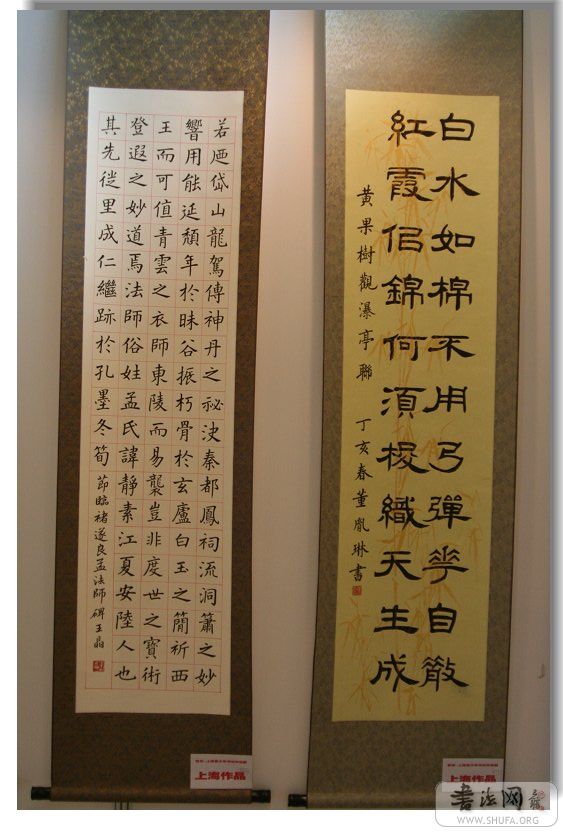 白水如棉不用弓彈花自散
紅霞佀錦何須梭織天生成
黃果樹觀瀑亭聯 丁亥春董胤琳書
若迺岱山龍駕傳神丹之祕決秦都鳳祠流洞簫之妙
響用能延頹年於昧谷振朽骨於玄廬白玉之簡祈西
王而可值青雲之衣師東陵而易襲豈非度世之寶術
登遐之妙道焉法師俗姓孟氏諱靜素江夏安陸人也
其先徙里成仁繼跡於孔墨冬筍 節臨褚遂良孟法師碑王晶
上海作品
上海作品
书法网
WWW.SHUFA.ORG